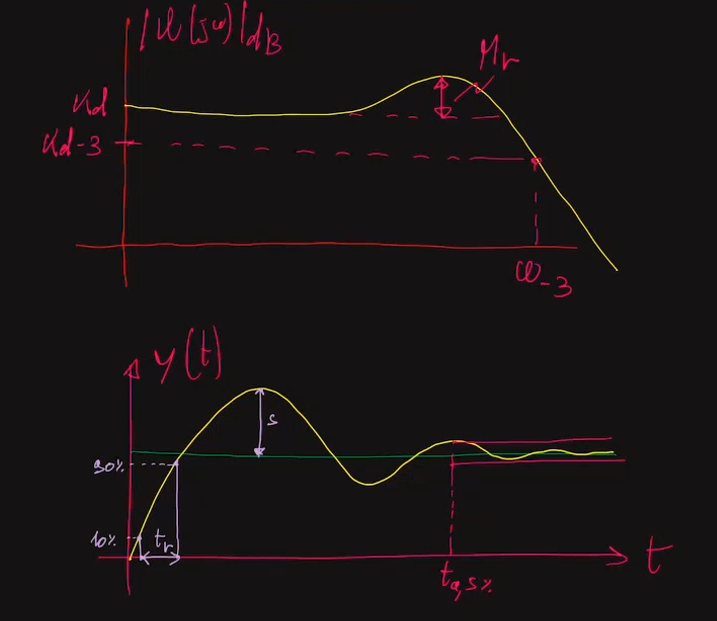 |W(jω)|dB
Mr
Kd
Kd-3
ω-3
y(t)
s
90%
10%
tr
t
ta,5%